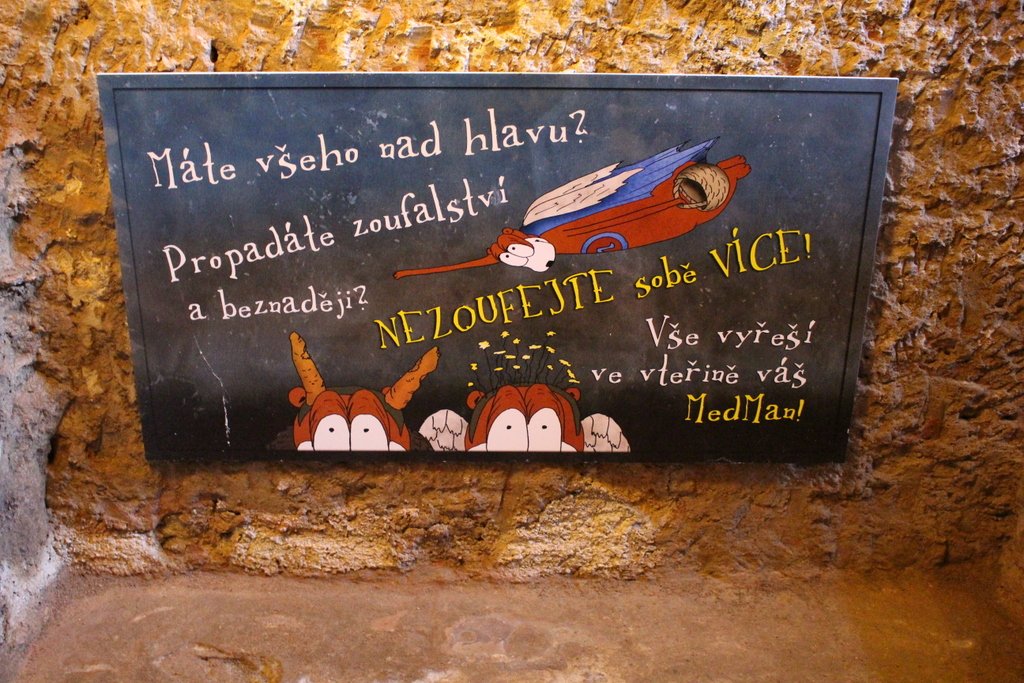 Máte všeho nad hlavu?
Propadáte zoufalství
a beznaději?
NEZOUFEJTE sobě VÍCE!
Vše vyřeší
ve vteřině váš
MedMan!